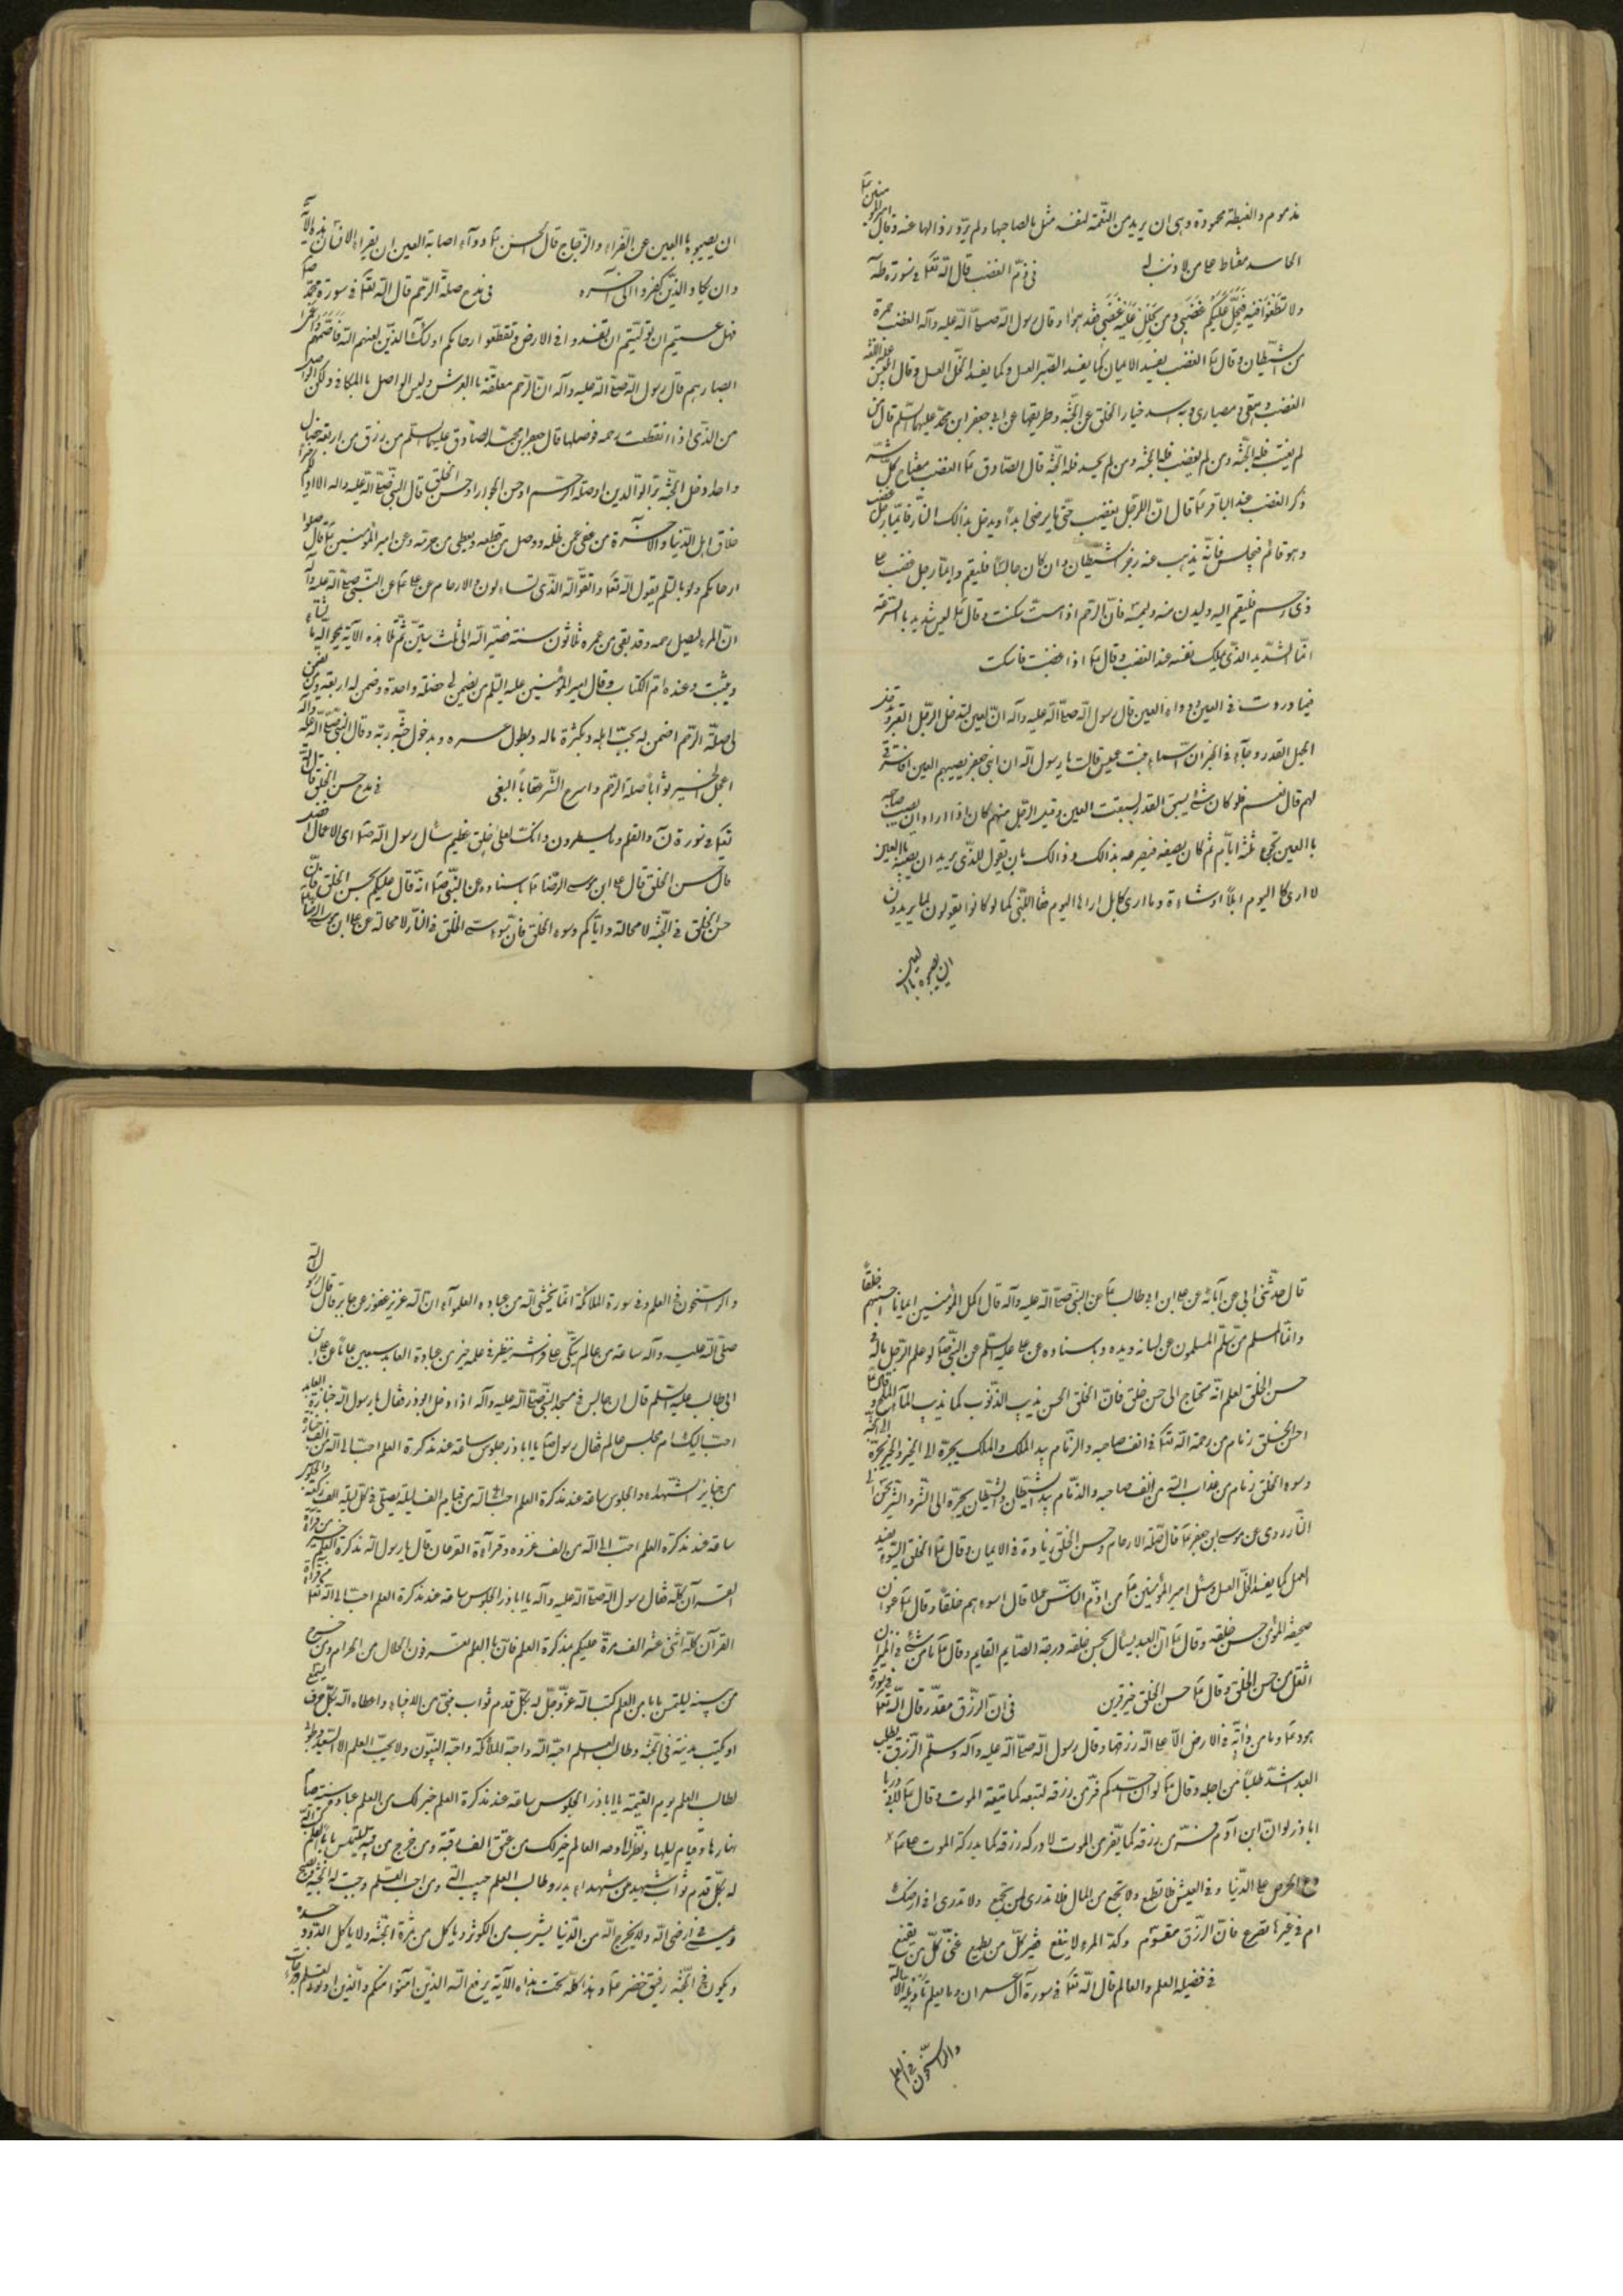 مذموم والغبطة محمودة وهی ان یرید من النّعمة لنفسه مثل ما لصاحبها ولم یرد زوالها عنه وقال امیر المؤمنین ع
الحاسد مغتاظ علی من لا ذنب له فی ذمّ الغضب قال الله تعا فی سورة طه
ولا تطغوا فیه فیحلّ علیکم غضبی ومن یحلل علیه غضبی فقد هوا وقال رسول الله صلّی الله علیه وآله الغضب جمرة
من الشّیطان وقال ع الغضب یفسد الایمان کما یفسد الصّبر العسل وکما یفسد الخلّ العسل وقال ابلیس علیه اللعنه
الغضب وهقی ومصیادی وبه اسد خیار الخلق عن الجنّة وطریقها عن ابی جعفر ابن محمّد علیهما السّلم قال من
لم یغتب فله الجنّة ومن لم یغضب فله الجنّة ومن لم یحسد فله الجنّة قال الصّادق ع الغضب مفتاح کلّ شرّ
ذکر الغضب عند الباقر ع قال انّ الرّجل یغضب حتّی ما یرضی ابداً ویدخل بذالک النّار فایّما رجل غضب
وهو قائم فیجلس فانّه یذهب عنه رجز الشّیطان وان کان جالساً فلیقم وایّما رجل غضب علی
ذی رحم فلیقم الیه ولیدن منه ولیمسّه فانّ الرّحم اذا مسّت سکنت وقال ع لیس شدید بالسّرعة
انّما الشّدید الذّی یملک نفسه عند الغضب وقال ع اذا غضبت فاسکت
فیما وردت فی العین ودواء العین قال رسول الله صلّی الله علیه وآله انّ العین لیدخل الرّجل القبر وقد
الجمل القدر وجاء فی الخبر ان اسماء بنت عمیس قالت یا رسول الله ان ابنی جعفر یصیبهم العین افاسترقی
لهم قال نعم فلو کان شئ یسبق القدر لسبقت العین وقیل الرّجل منهم کان اذا اراد ان یصیب صاحبه
باالعین تجوع ثلثة ایّام ثم کان یصفه فیصرعه بذالک وذالک بان یقول للذّی یرید ان یصیبه باالعین
لا اری کا الیوم ابلاً او شاءة وما اری کابل اراها الیوم فقالا للنّبی کما لو کانوا یقولون لما یریدون
ان یصیبوه باالعین
ان یصیبوه باالعین عن الفّراء والزّجاج قال الحسن ع دواء اصابة العین ان یقراء الانسان هذه الآیة
وان یکاد الذّین کفروا الی آخره فی مدح صلة الرّحم قال الله تعا فی سورة محمّد صلعم
فهل عسیتم ان تولّیتم ان تفسدوا فی الارض وتقطّعوا ارحامکم اولئک الذّین لعنهم الله فاصمّهم واعمی
ابصارهم قال رسول الله صلّی الله علیه وآله انّ الرّحم معلقّة باالعرش ولیس الواصل باالمکافی ولکن الواصل
من الذّی اذا انقطعت رحمه فوصلها قال جعفر ابن محمّد الصّادق علیهما السّلم من رزق من اربعة خصال
واحدة دخل الجنّة برّ الوالدین او صلة الرّحم او حسن الجوار او حسن الخلق قال النبّی صلّی الله علیه واله الا ادلّکم
خلاق اهل الدّنیا والآخرة من عفی عمن ظلمه ووصل من قطعه ویعطی من حرمه وعن امیر المؤمنین ع قال صلوا
ارحامکم ولو بالسّلم یقول الله تعا واتقوّا الله الذّی تساءلون به والارحام عن علی ع عن النّبی صلّی الله علیه وآله
انّ المرء لیصل رحمه وقد بقی من عمره ثلاثون سنة فصیّر الله الی ثلث سنین ثمّ تلا هذه الآیة یمحو الله ما یشاء
ویثبت وعنده امّ الکتاب وقال امیر المؤمنین علیه السّلم من یضمن لی خصلة واحدة وضمن له اربعة من یضمن
لی صلة الرّحم اضمن له بحبّ اهله وبکثرة ماله وبطول عمره وبدخول جنّة ربّه وقال النبّی صلّی الله علیه وآله
اعجل الخیر ثواباً صلة الرّحم واسرع الشّر عقاباً البغی فی مدح حسن الخلق قال الله
تعا فی سورة ن والقلم وما یسطرون وانّک لعلی خلق عظیم سأل رسول الله ص ای الاعمال افضل
قال حسن الخلق قال علی ابن موسی الرّضا ع باسناده عن النبّی ص انّه قال علیکم بحسن الخلق فانّ
حسن الخلق فی الجنّة لا محالة وایّاکم وسوء الخلق فانّ سوء الخلق فی النّار لا محالة عن علی ابن موسی الرّضا
قال حدّثنی ابی عن آبائه عن علی ابن ابی طالب ع عن النبّی صلّی الله علیه وآله قال اکمل المؤمنین ایماناً احسنهم خلقاً
وانّما المسلم من سلم المسلمون عن لسانه ویده وباسناده عن علی علیه السّلم عن النبّی ص لو علم الرّجل ماله فی
حسن الخلق لعلم انّه محتاج الی حسن خلق فانّ الخلق الحسن یذیب الذّنوب کما یذیب المآء الملح وقال ع
احسن الخلق زمام من رحمة الله تعا فی انف صاحبه والزّمام بید الملک والملک یجرّه الی الخیر والخیر یجرّه الی الجنّة
وسوء الخلق زمام من عذاب الله من انف صاحبه والزّمام بید الشّیطان والشّیطان یجرّه الی الشّر والشّر یجرّه الی
النّار روی عن موسی ابن جعفر ع قال صلة الارحام وحسن الخلق زیادة فی الایمان وقال ع الخلق السّوء یفسد
العمل کما یفسد الخلّ العسل وسئل امیر المؤمنین ع من ادّم النّاس عملا قال اسوءهم خلقاً وقال ع عنوان
صحیفة المؤمن حسن خلقه وقال ع انّ العبد یسأل بحسن خلقه درجة الصّایم القایم وقال ع ما من شئ فی المیزان
اثقل من حسن الخلق وقال ع حسن الخلق خیر قرین فی انّ الرّزق مقدّر قال الله تعا فی سورة
هود ع وما من دابّة فی الارض الّا علی الله رزقها وقال رسول الله صلّی الله علیه وآله وسلّم الرّزق یطلب
العبد اشدّ طلباً من اجله وقال ع لو ان احدکم فرّ من رزقه لتبعه کما یتبعه الموت وقال ع لابی ذر یا
اباذر لو انّ ابن آدم فرّ من رزقه کما یفرّ من الموت لادرکه رزقه کما یدرکه الموت علی ع
دع الحرص علی الدّنیا وفی العیش فلا تطمع ولا تجمع من المال فلا تدری لمن تجمع ولا تدری افی ارضک
ام فی غیرها تصرع فانّ الرّزق مقسوم وکدّ المرء لا ینفع فقیر کلّ من یطمع غنیّ کلّ من یقنع
فی فضیلة العلم والعالم قال الله تعا فی سورة آل عمران وما یعلم تأویله الّا الله
والرّاسخون فی العلم
والرّاسخون فی العلم وفی سورة الملائکة انّما یخشی الله من عباده العلمآء انّ الله عزیز غفور عن جابر قال قال رسول الله
صلّی الله علیه وآله ساعة من عالم یتکّی علی فراشه ینظر فی علمه خیر من عبادة العابد سبعین عاماً عن علی ابن
ابی طالب علیه السّلم قال ان جالس فی مسجد النبّی صلّی الله علیه وآله اذا دخل ابوذر فقال یا رسول الله جنازة العابد
احبّ الیک ام مجلس عالم فقال رسول ص یا اباذر جلوس ساعة عند مذکرة العلم احبّ الی الله من الف جنازة
من جنایز الشّهداء والجلوس ساعة عند مذکرة العلم احبّ الی الله من قیام الف لیلة یصلّی فی کلّ لیلة الف رکعة والجلوس
ساعة عند مذکرة العلم احبّ الی الله من الف غزوه وقرآءة القرءان قال یا رسول الله مذکرة العلم خیر من قراءة
القرآن کلّه فقال رسول الله صلّی الله علیه وآله یا اباذر الجلوس ساعة عند مذکرة العلم احبّ الی الله تعا من قراءة
القرآن کلّه اثنی عشر الف مرّة علیکم بمذکرة العلم فانّ باالعلم تعرفون الحلال من الحرام ومن خرج
من بیته لیلتمس باباً من العلم کتب الله عزّوجلّ له بکلّ قدم ثواب نبیّ من الانبیاء واعطاه الله بکلّ حرف یستمع
او یکتب مدینة فی الجنّة وطالب العلم احبّه الله واحبّه الملائکة واحبّه النبیّون ولا یحبّ العلم الّا السّعید وطوبی
لطالب العلم یوم القیمة یا اباذر الجلوس ساعة عند مذکرة العلم خیر لک من العلم عبادة سنة صیام
نهارها وقیام لیلها ونظرک الی وجه العالم خیر لک من عتق الف رقبة ومن خرج من بیته لیلتمس باباً من العلم کتب الله
له بکلّ قدم ثواب شهید من شهداء بدر وطالب العلم حبیب الله ومن احبّ العلم وجبت له الجنّة ویصبح
ویمسی فی رضی الله ولا یخرج الله من الدّنیا یشرب من الکوثر ویاکل من ثمرة الجنّة ولا یاکل الدّود جسده
ویکون فی الجنّة رفیق خضر ع وهذا کلّه تحت هذه الآیة یرفع الله الذّین آمنوا منکم والذّین اوتوا العلم درجات